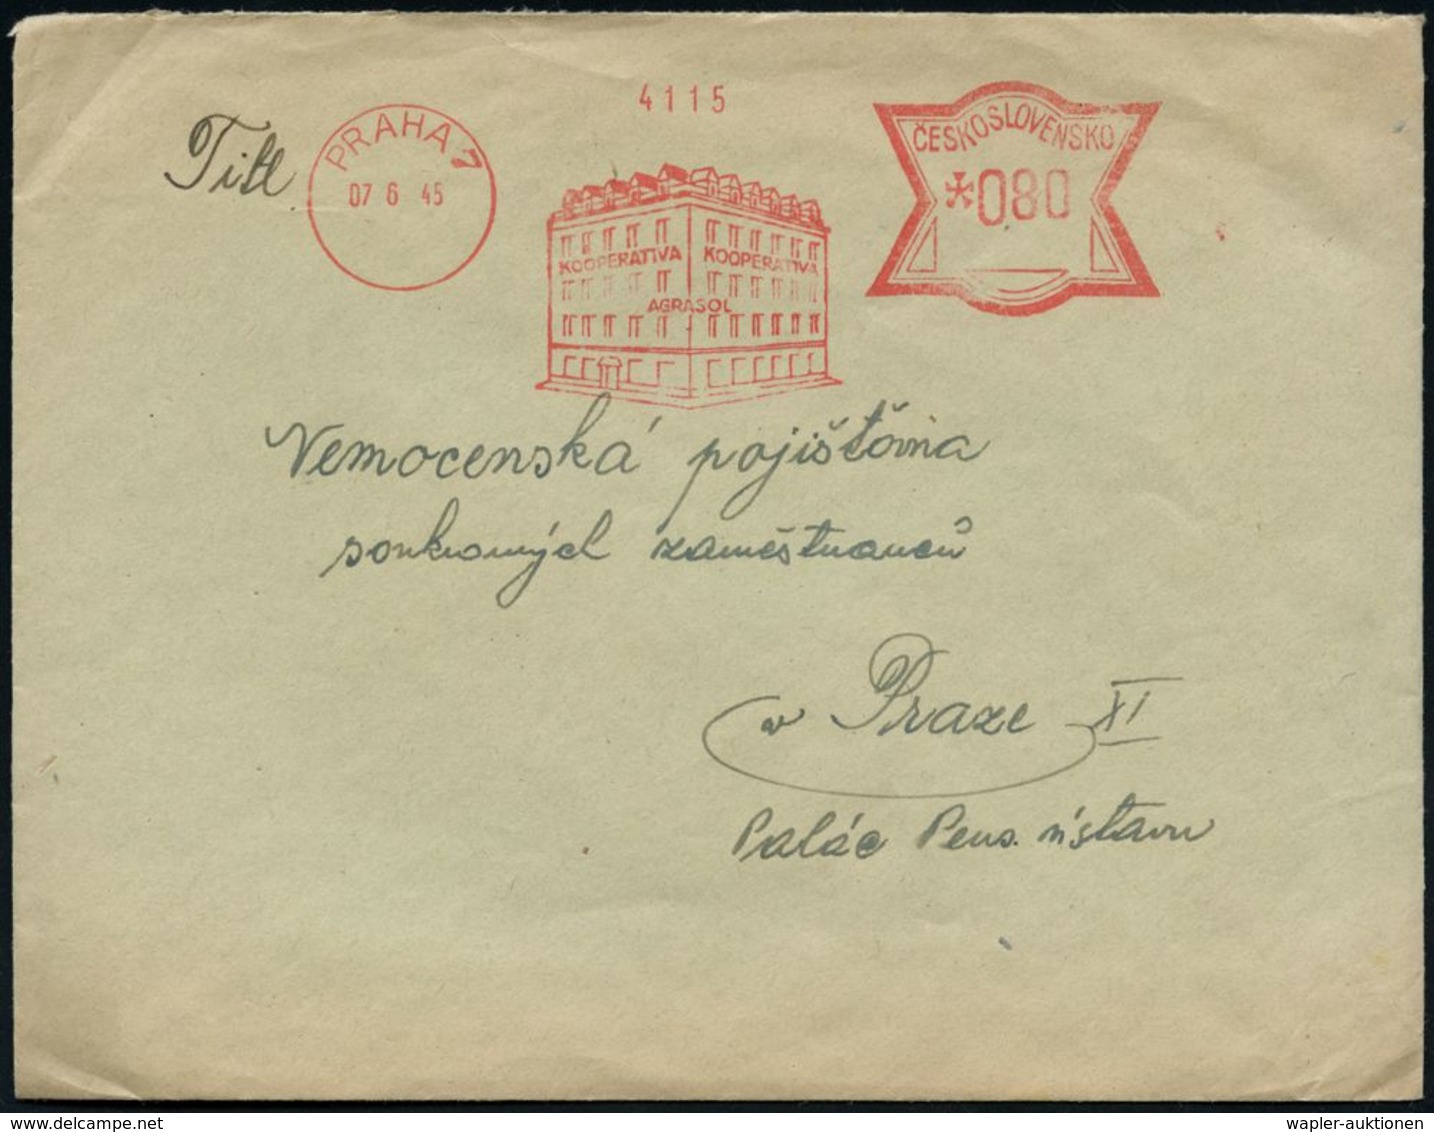 4115
Titl.
PRAHA 7
07 6 45
ČESKOSLOVENSKO
*080
KOOPERATIVA KOOPERATIVA
AGRASOL
Nemocenská pojišťovna
soukromých zaměstnanců
v Praze XI
Palác Pens. ústavu
wapler-auktionen